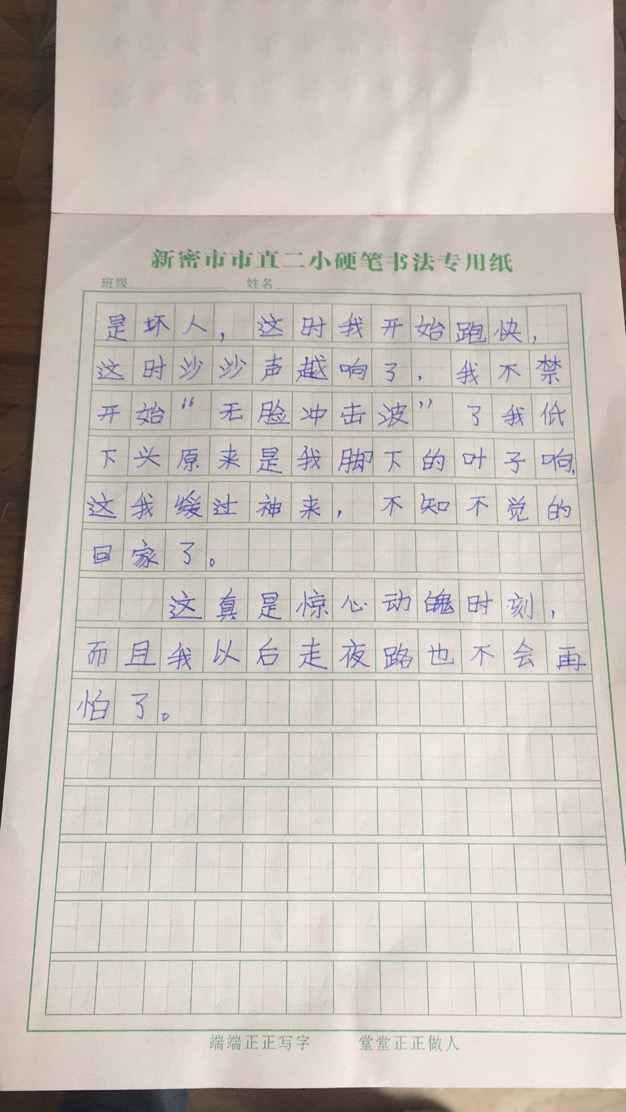 新密市市直二小硬笔书法专用纸
班级 姓名
是坏人，这时我开始跑快，
这时沙沙声越响了，我不禁
开始“无脸冲击波”了我低
下头原来是我脚下的叶子响，
这我缓过神来，不知不觉的
回家了。
这真是惊心动魄时刻，
而且我以后走夜路也不会再
怕了。
端端正正写字 堂堂正正做人